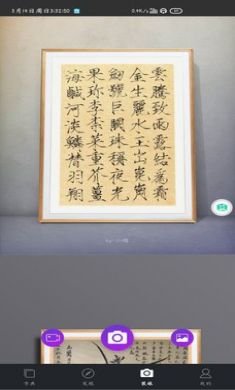 3月14日 周日 3:32:50
雲騰致雨露結爲霜
金生麗水玉出崑岡
劍號巨闕珠稱夜光
果珍李柰菜重芥薑
海鹹河淡鱗潛羽翔
字典
发现
我的